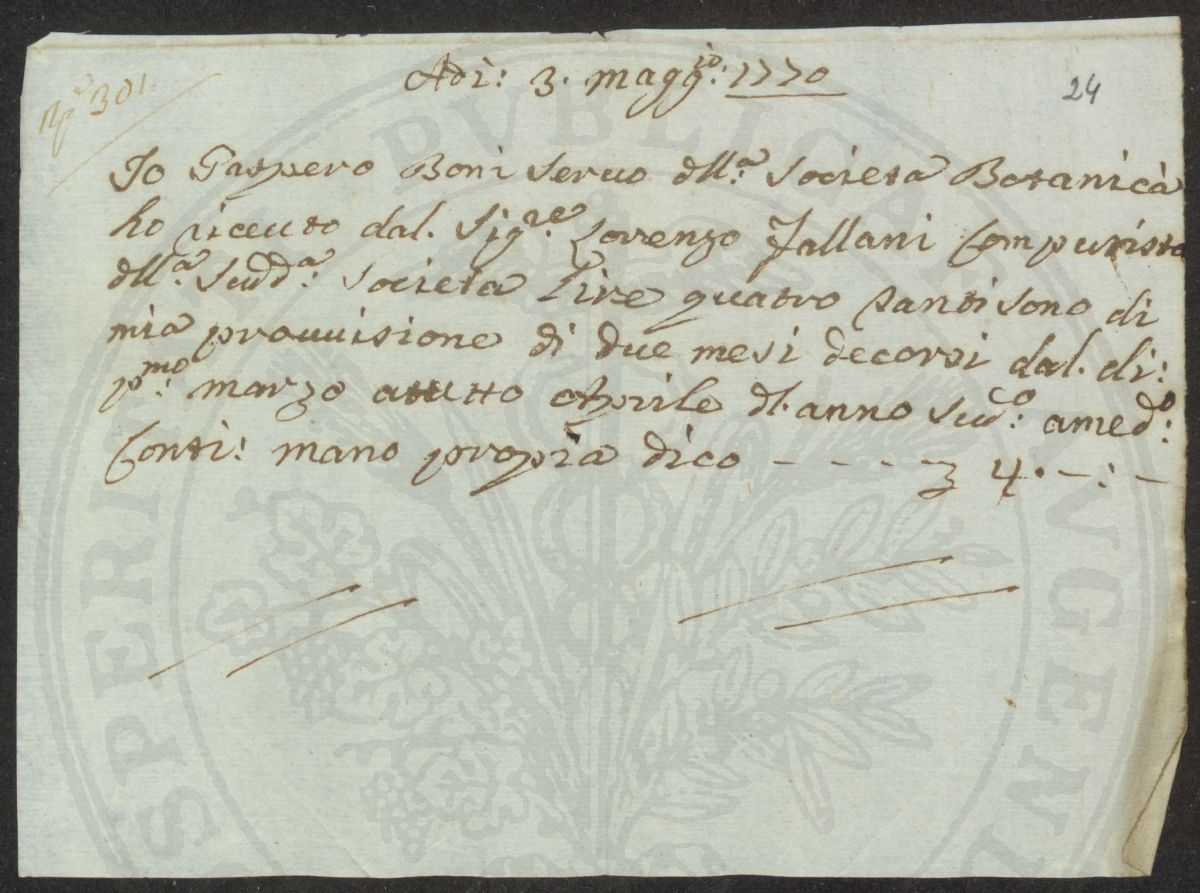 N.º 301.
Adì: 3. magg.io: 1770
24
Io Gaspero Boni Seruo dll.a Societa Botanica
ho riceuto dal. Sig.re: Lorenzo Fallani Computista
dll.a Sudd.a: Societa Lire quatro tanti sono di
mia prouuisione di due mesi decorsi dal. di:
p.mo: marzo atutto Aprile dl. anno Sud.o: amed.o:
Conti: mano propia dico - - - - 4. -:-
PUBLICAE